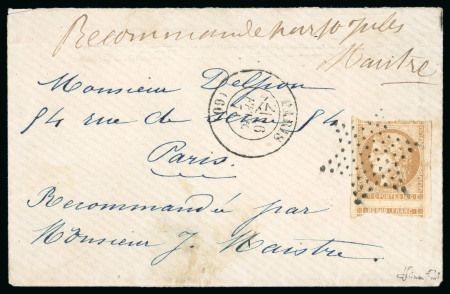 Recommandé par Jules
Maistre
Monsieur Delpon
84 rue de Seine 84
Paris.
Recommandée par
Monsieur J. Maistre
PARIS
(60)
POSTES
REPUB FRANC